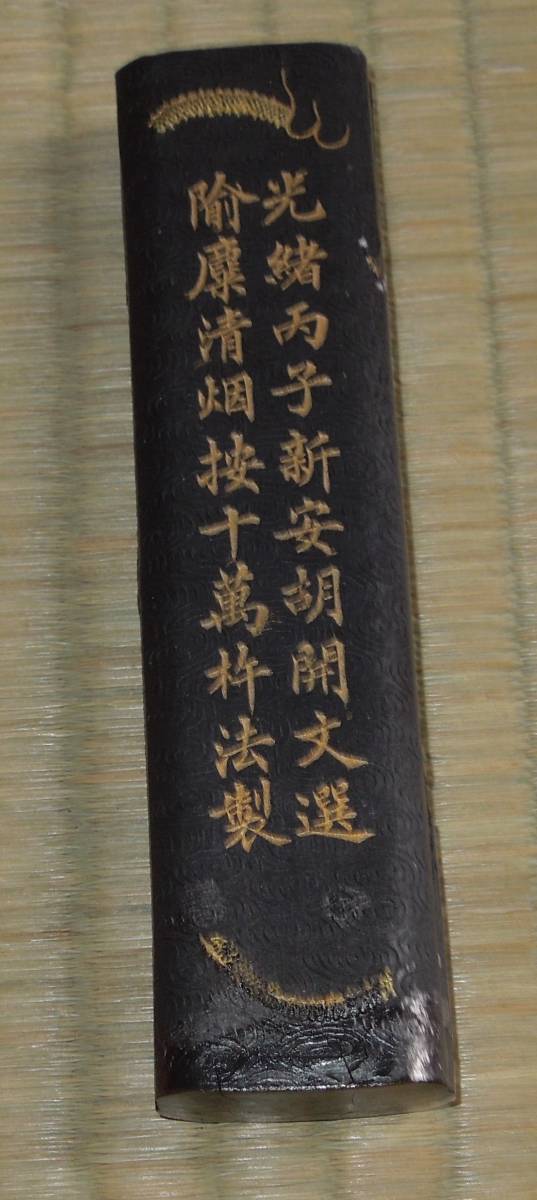 光緒丙子新安胡開文選
隃麋清烟按十萬杵法製